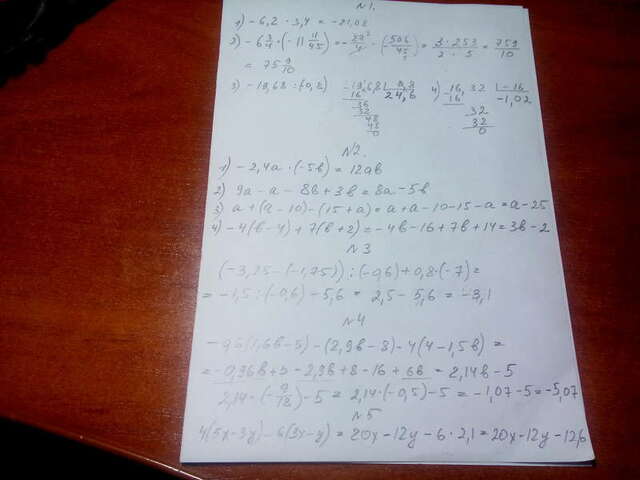 N1.
1) -6,2 · 3,4 = -21,08
2) -6 3/4 · (-11 11/45) = -27/4 · (-506/45) = 3·253/2·5 = 759/10
= 75 9/10
3) -19,68 : (-0,8) 24,6 4) -16,32 -16 -1,02
16 16
36 32
32 32
48 0
48
0
N2.
1) -2,4a · (-5b) = 12ab
2) 9a - a - 8b + 3b = 8a - 5b
3) a + (a - 10) - (15 + a) = a + a - 10 - 15 - a = a - 25
4) -4(b - 4) + 7(b + 2) = -4b - 16 + 7b + 14 = 3b - 2
N3
(-3,25 - (-1,75)) : (-0,6) + 0,8 · (-7) =
= -1,5 : (-0,6) - 5,6 = 2,5 - 5,6 = -3,1
N4
-0,6(1,6b - 5) - (2,9b - 8) - 4(4 - 1,5b) =
= -0,96b + 3 - 2,9b + 8 - 16 + 6b = 2,14b - 5
2,14 · (-9/18) - 5 = 2,14 · (-0,5) - 5 = -1,07 - 5 = -5,07
N5
4(5x - 3y) - 6(3x - y) = 20x - 12y - 6 · 2,1 = 20x - 12y - 12,6